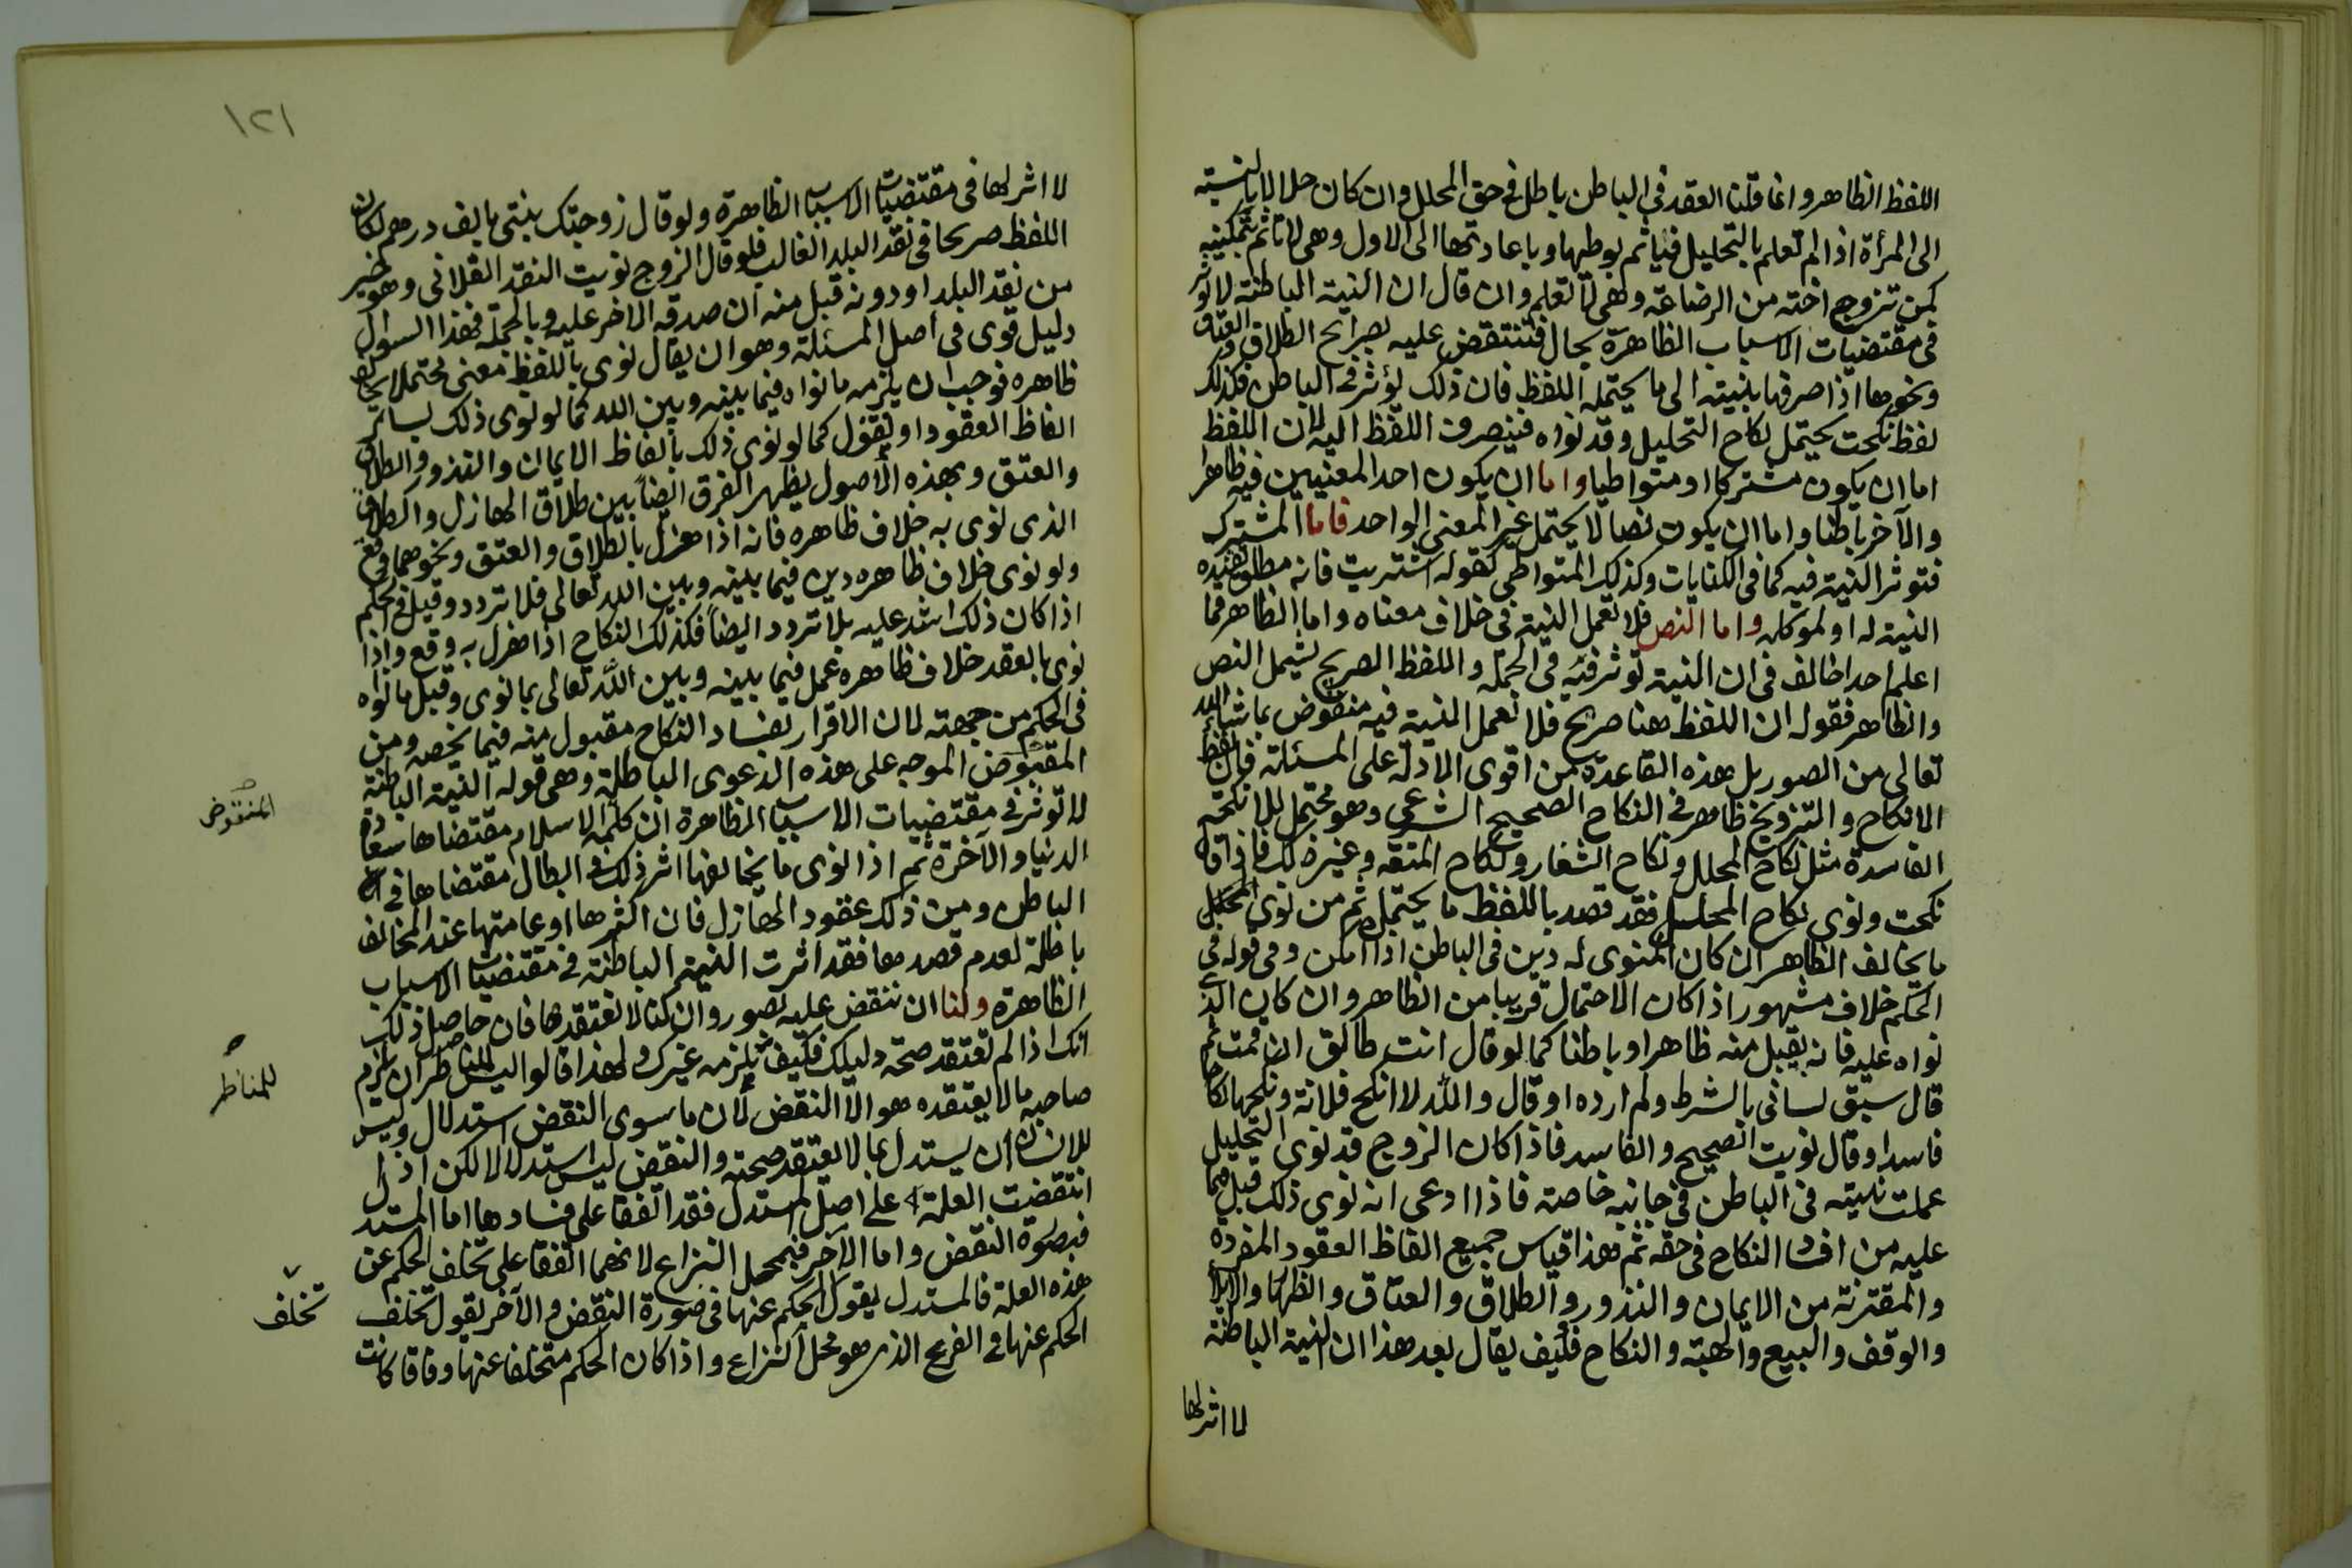 اللفظ الظاهر وانما قلنا العقد في الباطن باطل في حق المحلل وان كان حلالا بالنسبة
الى المرأة اذا لم تعلم بالتحليل فيأثم بوطيها وباعادتها الى الاول وهي لا تأثم بتمكينه
كمن تزوج اخته من الرضاعة وهي لا تعلم وان قال ان النية الباطنة لا تؤثر
في مقتضيات الاسباب الظاهرة بحال فتنتقض عليه بصرايح الطلاق والعتاق
ونحوها اذا صرفها بنيته الى ما يحتمله اللفظ فان ذلك يؤثر في الباطن فكذلك
لفظ نكحت يحتمل نكاح التحليل وقد نواه فينصرف اللفظ اليه لان اللفظ
اما ان يكون مشتركا او متواطيا واما ان يكون احد المعنيين فيه ظاهرا
والآخر باطنا واما ان يكون نصا لا يحتمل غير المعنى الواحد فاما المشترك
فتوثر النية فيه كما في الكنايات وكذلك المتواطي كقوله اشتريت فانه مطلق تقيده
النية له او لموكله واما النص فلا تعمل النية في خلاف معناه واما الظاهر فما
اعلم احدا خالف في ان النية تؤثر فيه في الجملة واللفظ الصريح يشمل النص
والظاهر فقوله ان اللفظ هنا صريح فلا تعمل النية فيه منقوض بما شاء الله
تعالى من الصور بل هذه القاعدة من اقوى الادلة على المسئلة فان لفظ
الانكاح والتزويج ظاهر في النكاح الصحيح الشرعي وهو محتمل للانكحة
الفاسدة مثل نكاح المحلل ونكاح الشغار ونكاح المتعة وغير ذلك فاذا قال
نكحت ونوى نكاح المحلل فقد قصد باللفظ ما يحتمله ثم من نوى المحتمل
ما يخالف الظاهر ان كان المنوى له دين في الباطن اذا امكن وفي قوله في
الحكم خلاف مشهور اذا كان الاحتمال قريبا من الظاهر وان كان الذي
نواه عليه فانه يقبل منه ظاهرا وباطنا كما لو قال انت طالق ان قمت ثم
قال سبق لساني بالشرط ولم ارده او قال والله لا انكح فلانة ونكحها نكاحا
فاسدا وقال نويت الصحيح والفاسد فاذا كان الزوج قد نوى التحليل
عملت نيته في الباطن في جانبه خاصة فاذا ادعى انه نوى ذلك قبل فيما
عليه من افساد النكاح في حقه ثم هذا قياس جميع الفاظ العقود المفردة
والمقترنة من الايمان والنذور والطلاق والعتاق والظهار والايلاء
والوقف والبيع والهبة والنكاح فكيف يقال بعد هذا ان النية الباطنة
لا اثر لها
١٢١
لا اثر لها في مقتضيات الاسباب الظاهرة ولو قال زوجتك بنتي بالف درهم لكان
اللفظ صريحا في نقد البلد الغالب فلو قال الزوج نويت النقد الفلاني وهو خير
من نقد البلد او دونه قبل منه ان صدقه الآخر عليه وبالجملة فهذا السوال
دليل قوى في اصل المسئلة وهو ان يقال نوى باللفظ معنى محتملا يخالف
ظاهره فوجب ان يلزمه ما نواه فيما بينه وبين الله كما لو نوى ذلك بسائر
الفاظ العقود او يقول كما لو نوى ذلك بالفاظ الايمان والنذور والطلاق
والعتق وبهذه الأصول يظهر الفرق ايضا بين طلاق الهازل والطلاق
الذى نوى به خلاف ظاهره فانه اذا هزل بالطلاق والعتق ونحوهما وقع
ولو نوى خلاف ظاهره دين فيما بينه وبين الله تعالى فلا تردد وقبل في الحكم
اذا كان ذلك اشد عليه بلا تردد ايضا فكذلك النكاح اذا هزل به وقع واذا
نوى بالعقد خلاف ظاهره عمل فيما بينه وبين الله تعالى بما نوى وقبل ما نواه
في الحكم من جهته لان الاقرار بفساد النكاح مقبول منه فيما يخصه ومن
المقبوض الموجه على هذه الدعوى الباطلة وهي قوله النية الباطنة
لا تؤثر في مقتضيات الاسباب الظاهرة ان كلمة الاسلام مقتضاها سعادة
الدنيا والآخرة ثم اذا نوى ما يخالفها اثر ذلك في ابطال مقتضاها في
الباطن ومن ذلك عقود الهازل فان اكثرها او عامتها عند المخالف
باطلة لعدم قصدها فقد اثرت النية الباطنة في مقتضيات الاسباب
الظاهرة ولنا ان ننقض عليه بصور وان كنا لا نعتقدها فان حاصل ذلك
انك اذا لم تعتقد صحة دليلك فكيف تلزمه غيرك ولهذا قالوا ليس للمناظر ان يلزم
صاحبه ما لا يعتقده هو الا النقض لأن ما سوى النقض استدلال وليس
للانسان ان يستدل بما لا يعتقد صحته والنقض ليس استدلالا لكن اذا
انتقضت العلة على اصل المستدل فقد اتفقا على فسادها اما المستدل
فبصورة النقض واما الآخر فبمحل النزاع لانهما اتفقا على تخلف الحكم عن
هذه العلة فالمستدل يقول الحكم عنها في صورة النقض والآخر يقول تخلف
الحكم عنها في الفرع الذى هو محل النزاع واذا كان الحكم متخلفا عنها وفاقا كانت
المنقوض
للمناظر
تخلف